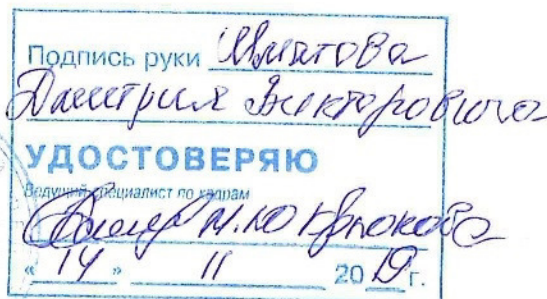 Подпись руки
Дмитрия Викторовича
УДОСТОВЕРЯЮ
Ведущий специалист по кадрам
М.Ю. Крюкова
"14" 11 2019 г.